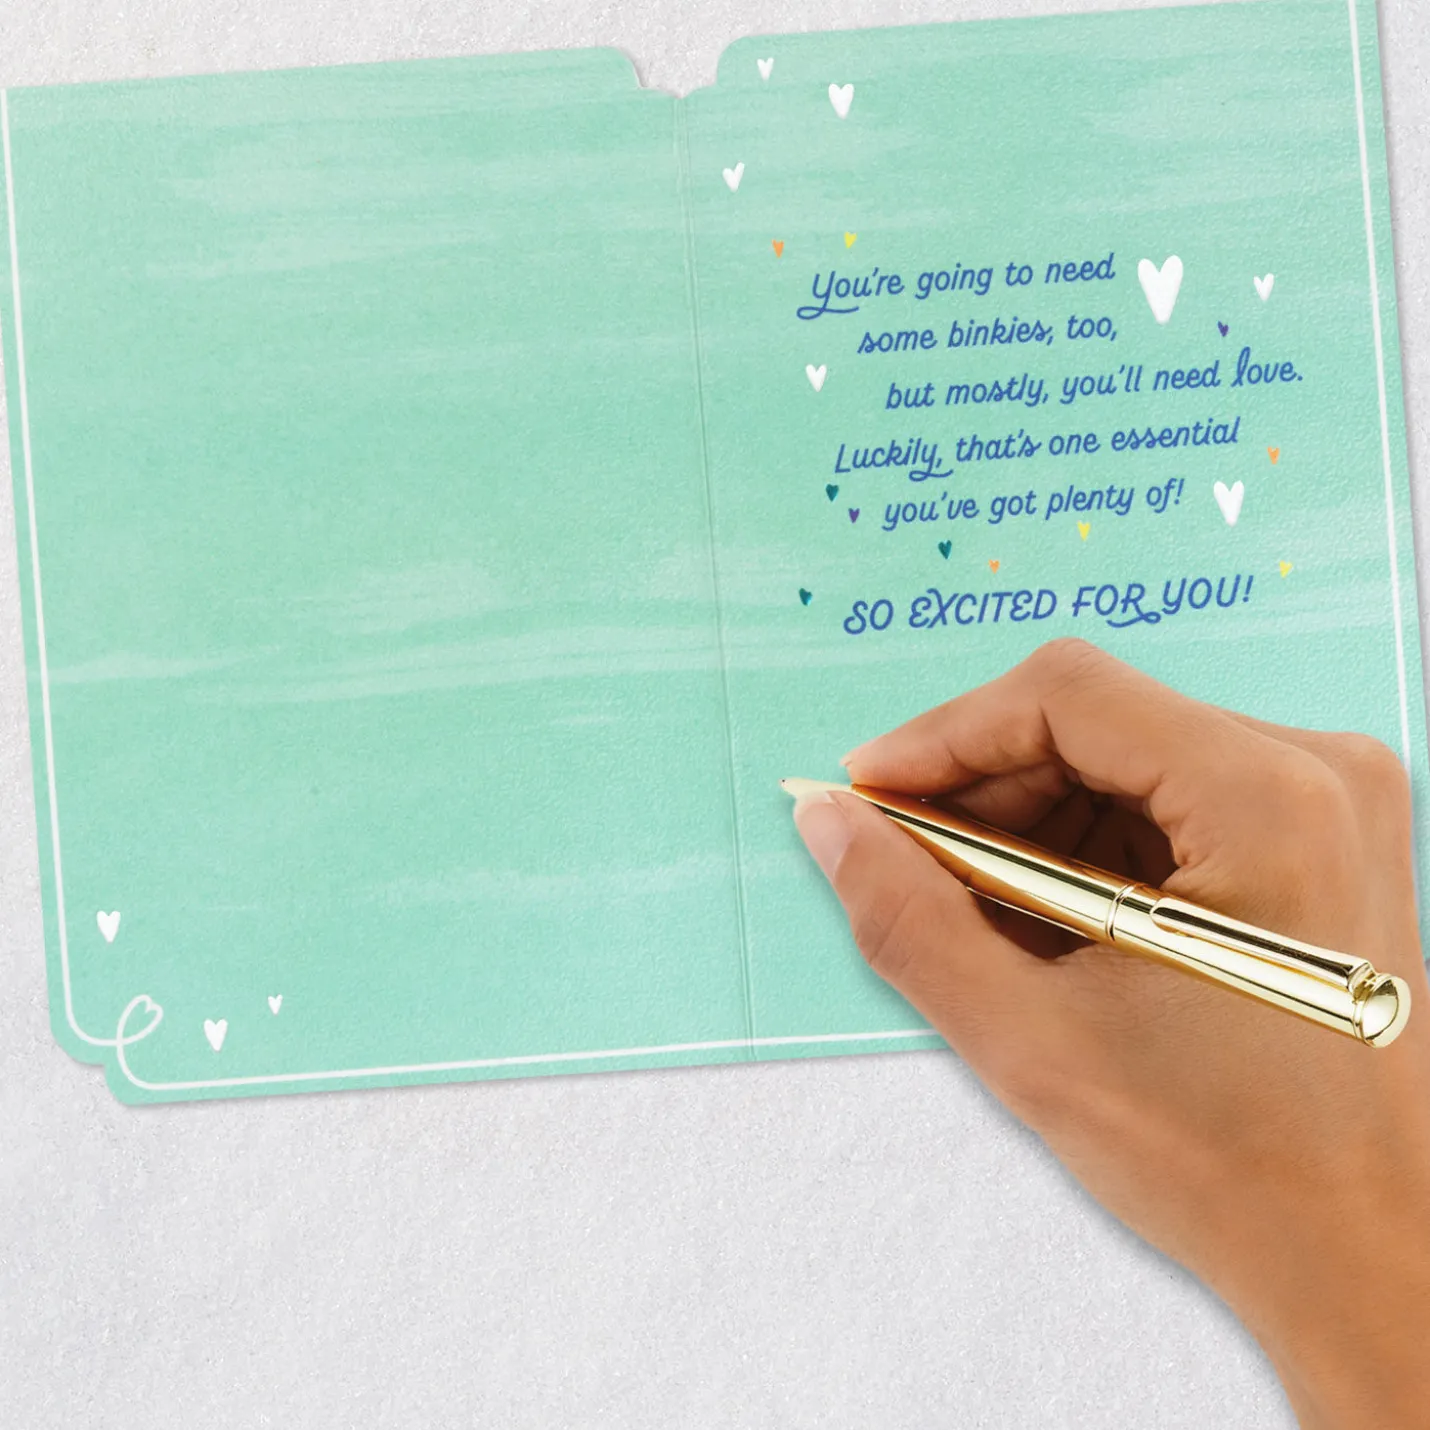 You're going to need
some binkies, too,
but mostly, you'll need love.
Luckily, that's one essential
you've got plenty of!
SO EXCITED FOR YOU!